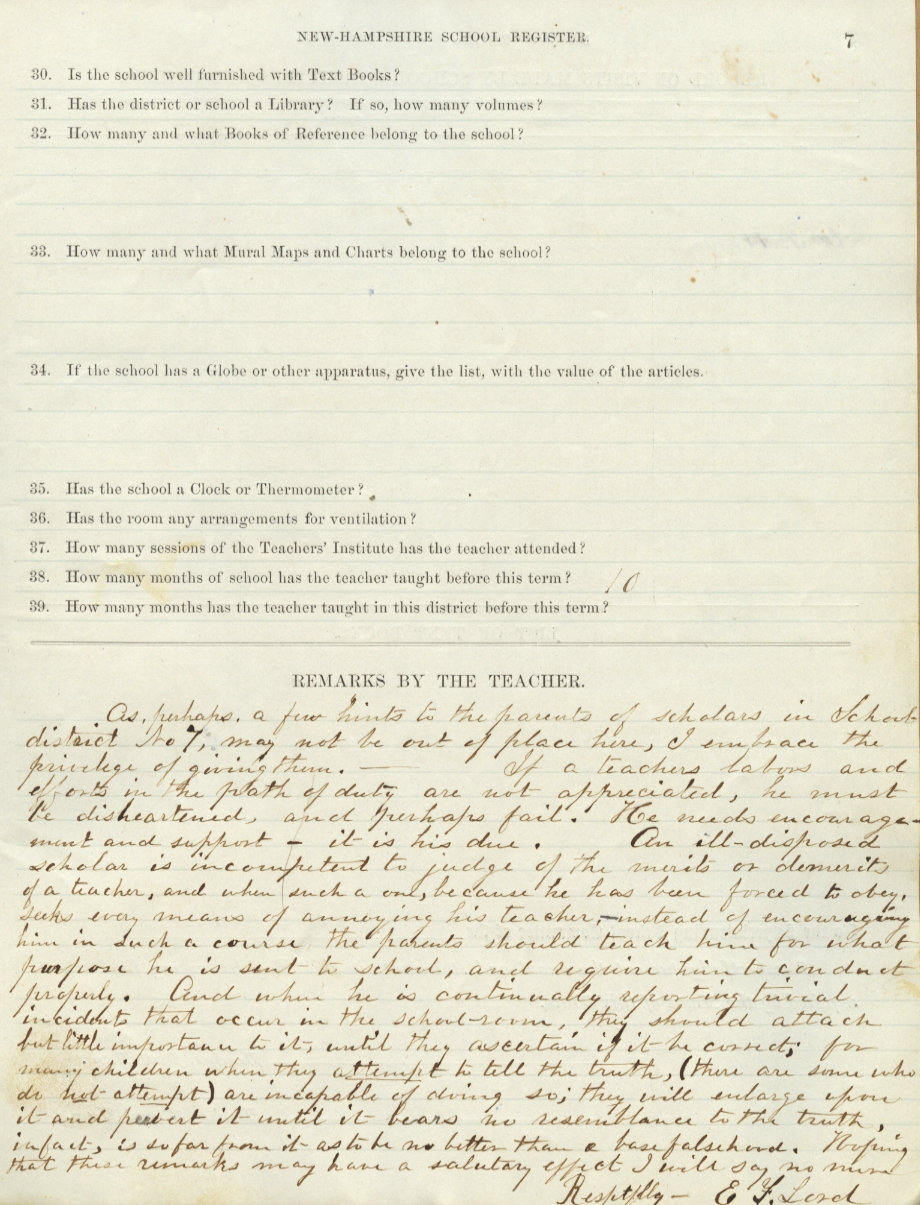 NEW-HAMPSHIRE SCHOOL REGISTER.
7
30. Is the school well furnished with Text Books?
31. Has the district or school a Library? If so, how many volumes?
32. How many and what Books of Reference belong to the school?
33. How many and what Mural Maps and Charts belong to the school?
34. If the school has a Globe or other apparatus, give the list, with the value of the articles.
35. Has the school a Clock or Thermometer?
36. Has the room any arrangements for ventilation?
37. How many sessions of the Teachers' Institute has the teacher attended?
38. How many months of school has the teacher taught before this term? 10
39. How many months has the teacher taught in this district before this term?
REMARKS BY THE TEACHER.
As, perhaps, a few hints to the parents of scholars in School-
district No 7, may not be out of place here, I embrace the
privilege of giving them. — If a teachers labors and
efforts in the path of duty are not appreciated, he must
be disheartened, and perhaps fail. He needs encourage-
ment and support – it is his due. An ill-disposed
scholar is incompetent to judge of the merits or demerits
of a teacher, and when such a one, because he has been forced to obey,
seeks every means of annoying his teacher, – instead of encouraging
him in such a course the parents should teach him for what
purpose he is sent to school, and require him to conduct
properly. And when he is continually reporting trivial
incidents that occur in the school-room, they should attach
but little importance to it, until they ascertain if it be correct; for
many children when they attempt to tell the truth, (there are some who
do not attempt) are incapable of doing so; they will enlarge upon
it and pervert it until it bears no resemblance to the truth,
in fact, is so far from it as to be no better than a base falsehood. Hoping
that these remarks may have a salutary effect I will say no more
Resptflly – E F. Lord